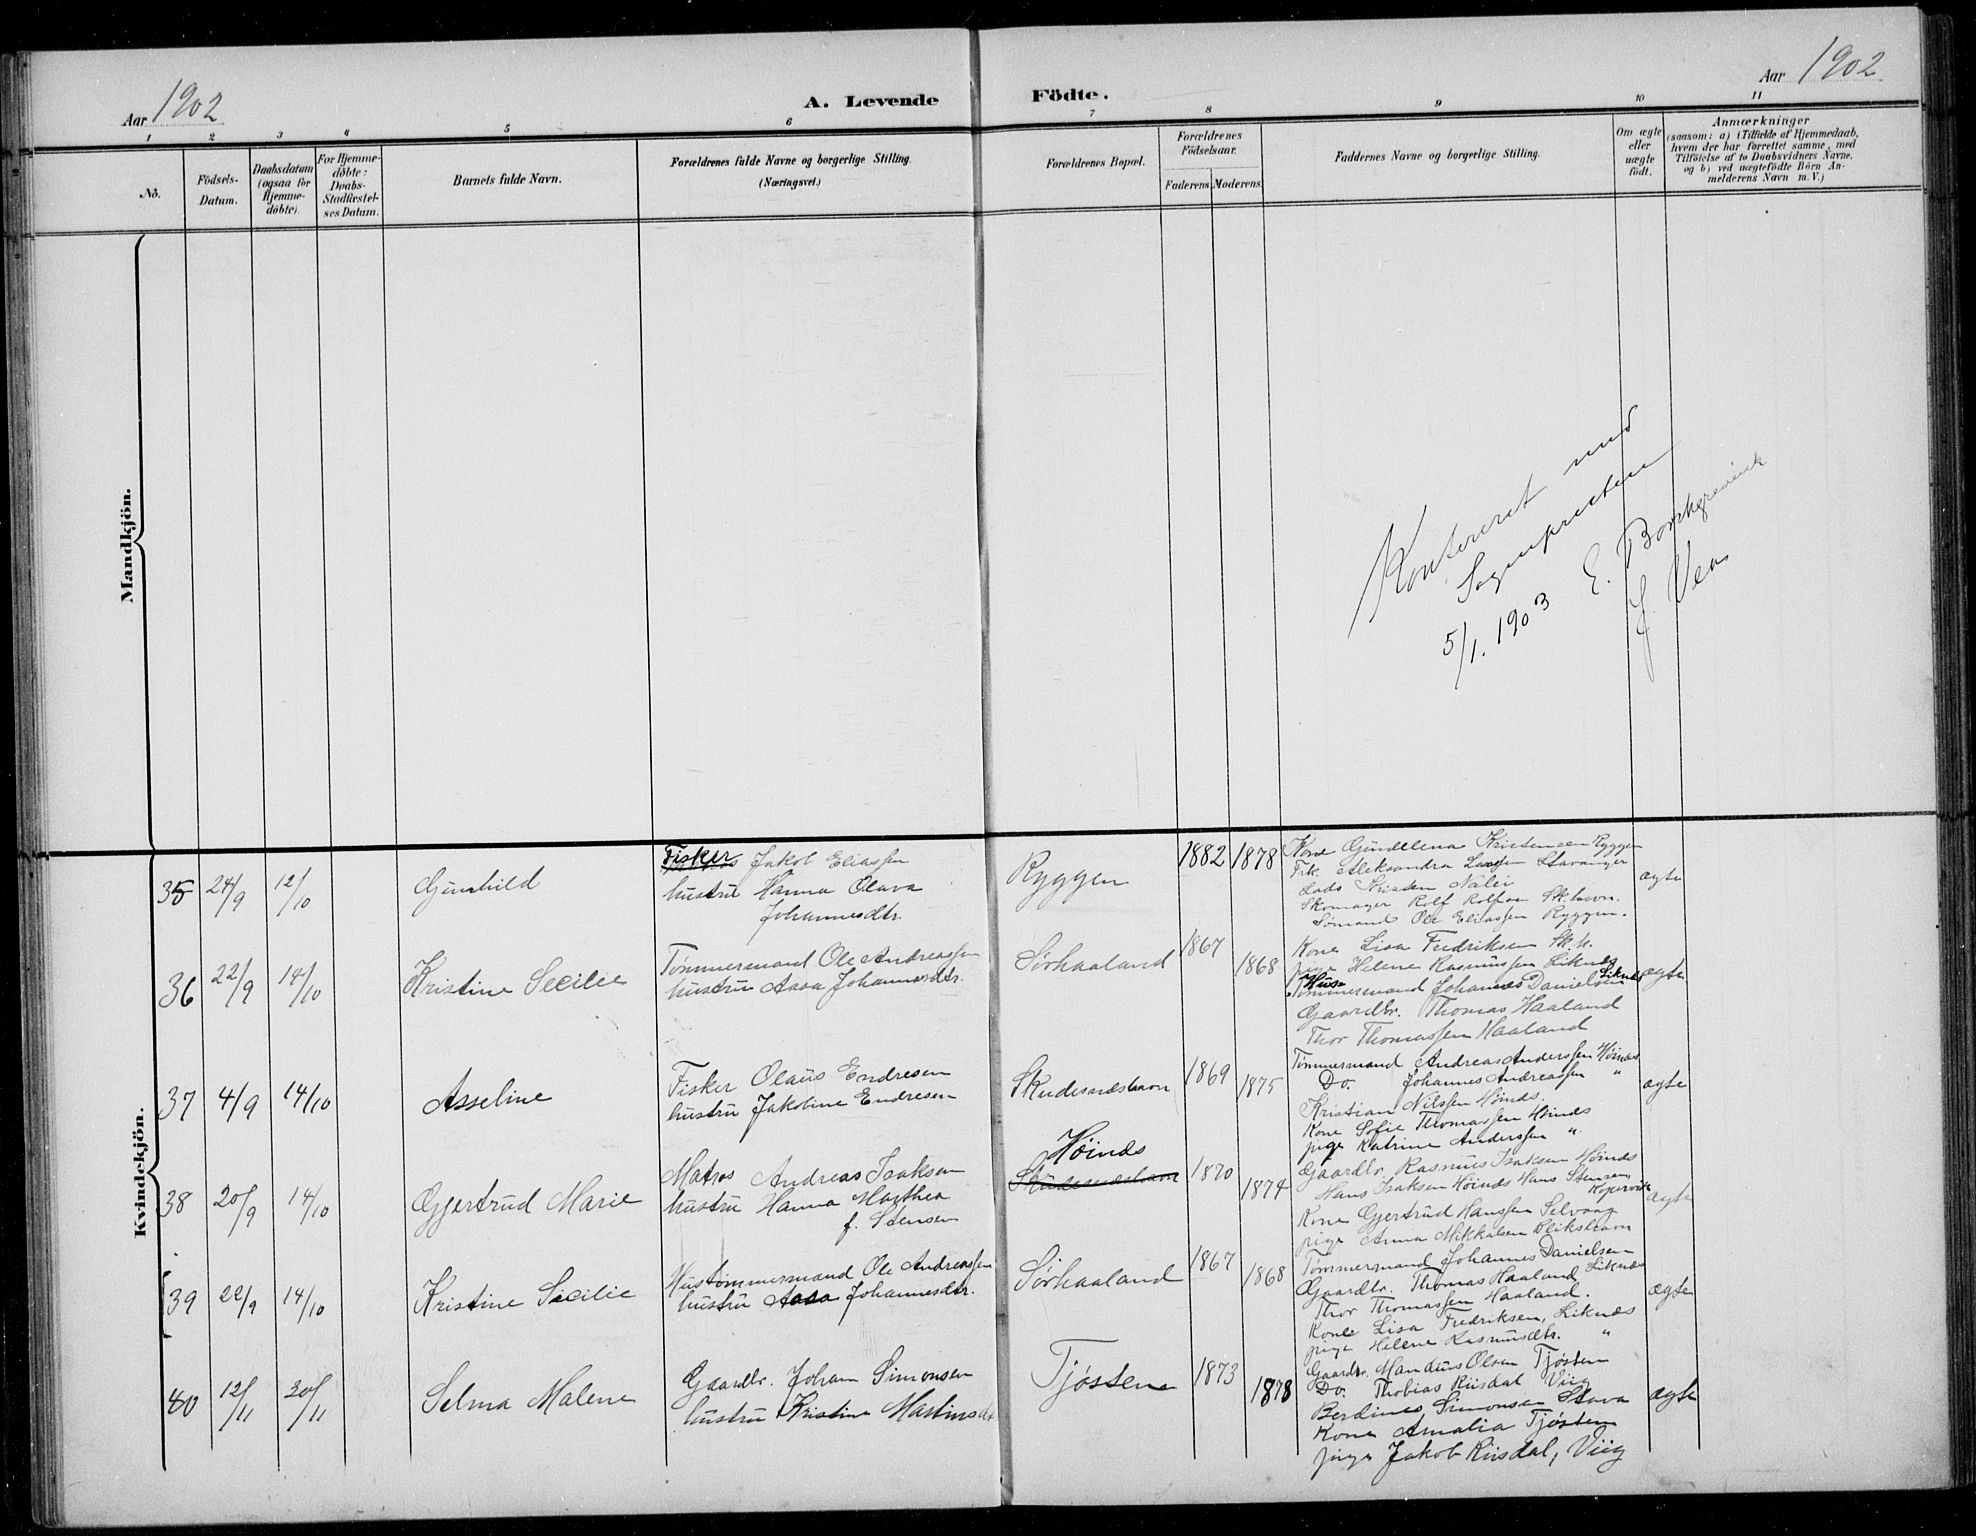 Aar 1902
A. Levende Födte.
Aar 1902
1 2 3 4 5 6 7 8 9 10 11
No.
Födsels-Datum.
Daabsdatum (ogsaa for Hjemme-döbte).
For Hjemme-döbte: Daabs-Stadfæstel-ses Datum.
Barnets fulde Navn.
Forældrenes fulde Navne og borgerlige Stilling. (Næringsvei.)
Forældrenes Bopæl.
Forældrenes Födselsaar.
Faderens. Moderens.
Faddernes Navne og borgerlige Stilling.
Om ægte eller uægte födt.
Anmærkninger
(saasom: a) i Tilfælde af Hjemmedaab, hvem der har forrettet samme, med Tilföielse af to Daabsvidners Navne, og b) ved uægtefödte Börn An-melderens Navn m. V.)
Mandkjön.
Konfereret med
Sognepresten
5/1. 1903 E. Borchgrevink
J. Vea
Kvindekjön.
35 24/9 12/10 Gunhild
Fisker Jakob Eliassen
hustru Hanna Olava
Johannesdtr.
Ryggen 1882 1878
Kone Gundelena Kristensen Ryggen
Frk. Aleksandra Stavanger
Lods Kristen Nalei
Skomager Rolf Rolfsen Sk.havn.
Sømand Ole Eliassen Ryggen.
ægte
36 22/9 14/10 Kristine Secilie
Tømmermand Ole Andreassen
hustru Aasa Johannesdtr.
Sørhaaland 1867 1868
Kone Lisa Fredriksen Sk.h.
pige Helene Rasmussen Liknæs
Hustømmermand Johannes Danielsen Liknæs
Gaardbr. Thomas Haaland
Thor Thomassen Haaland
ægte
37 4/9 14/10 Asseline
Fisker Olaus Endresen
hustru Jakobine Endresen
Skudesnæshavn 1869 1875
Tømmermand Andreas Anderssen Høinæs
Do. Johannes Andreassen "
Kristian Nilssen Høinæs.
Kone Sofie Thomassen Høinæs
pige Katrine Anderssen "
ægte
38 20/9 14/10 Gjertrud Marie
Matros Andreas Isaksen
hustru Hanna Marthea
f. Stensen
Høinæs
Skudesnæshavn
1870 1874
Gaardbr. Rasmus Isaksen Høinæs
Hans Isaksen Høinæs Hans Stensen
Kopervik
Kone Gjertrud Hanssen Selvaag
pige Anna Mikkalsen Blikshavn
ægte
39 22/9 14/10 Kristine Secilie
Hustømmermand Ole Andreassen
hustru Aasa Johannesdtr.
Sørhaaland 1867 1868
Tømmermand Johannes Danielsen
Liknæs
Gaardbr. Thomas Haaland
Thor Thomassen Haaland.
Kone Lisa Fredriksen, Liknæs
pige Helene Rasmusdtr. "
ægte
40 12/11 30/11 Selma Malene
Gaardbr. Johan Simonsen
hustru Kristine Martinsdtr
Tjøsten 1873 1878
Gaardbr. Mandius Olsen Tjøsten
Do. Thobias Riisdal Viig
Berdines Simonsen Stava
Kone Amalia Tjøsten
pige Jakob Riisdal, Viig
ægte